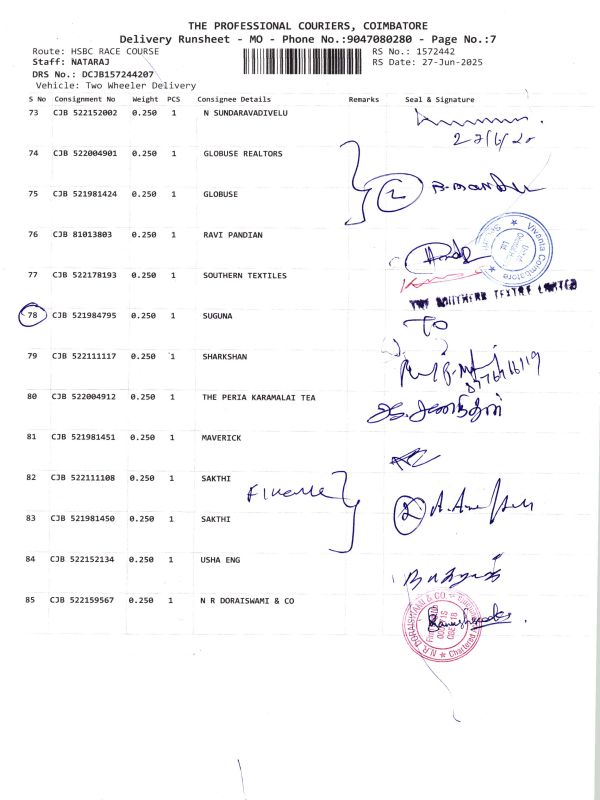 THE PROFESSIONAL COURIERS, COIMBATORE
Delivery Runsheet - MO - Phone No.:9047080280 - Page No.:7
Route: HSBC RACE COURSE RS No.: 1572442
Staff: NATARAJ RS Date: 27-Jun-2025
DRS No.: DCJB157244207
Vehicle: Two Wheeler Delivery
S No Consignment No Weight PCS Consignee Details Remarks Seal & Signature
73 CJB 522152002 0.250 1 N SUNDARAVADIVELU
74 CJB 522004901 0.250 1 GLOBUSE REALTORS
75 CJB 521981424 0.250 1 GLOBUSE 2
76 CJB 81013803 0.250 1 RAVI PANDIAN Vivanta Coimbatore
77 CJB 522178193 0.250 1 SOUTHERN TEXTILES
78 CJB 521984795 0.250 1 SUGUNA TO
79 CJB 522111117 0.250 1 SHARKSHAN
80 CJB 522004912 0.250 1 THE PERIA KARAMALAI TEA
81 CJB 521981451 0.250 1 MAVERICK
82 CJB 522111108 0.250 1 SAKTHI
83 CJB 521981450 0.250 1 SAKTHI 2
84 CJB 522152134 0.250 1 USHA ENG
85 CJB 522159567 0.250 1 N R DORAISWAMI & CO N.R. DORAISWAMI & CO Chartered